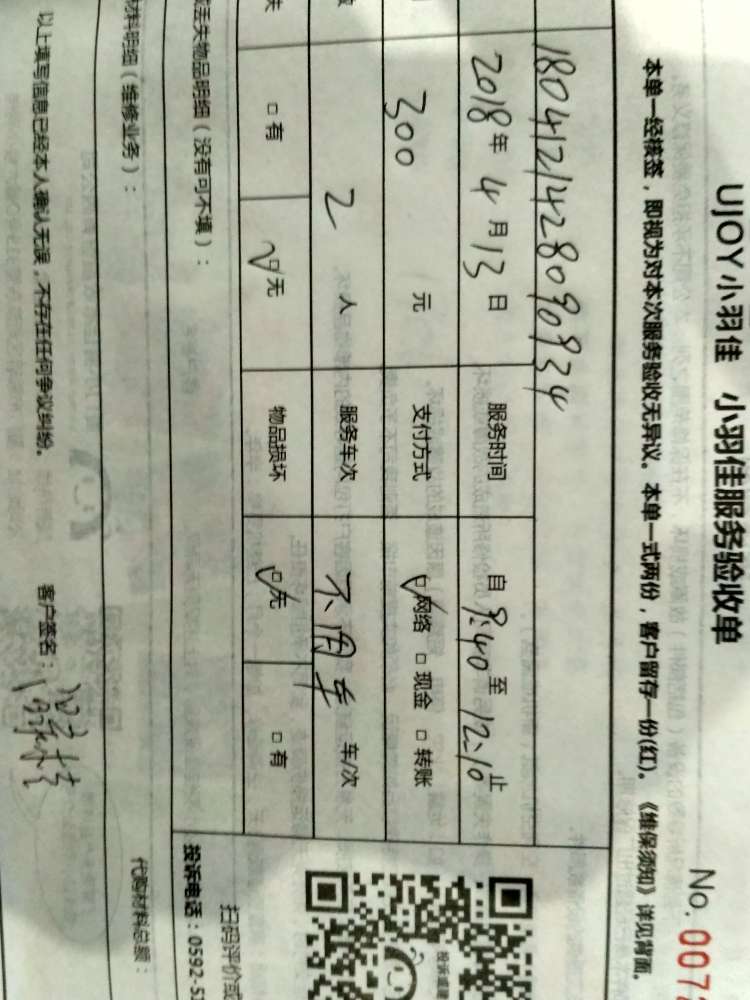 UJOY小羽佳 小羽佳服务验收单
No. 007
本单一经接签，即视为对本次服务验收无异议。本单一式两份，客户留存一份(红)。《维保须知》详见背面。
1804121428090934
2018年4月13日 服务时间 自9:40至12:10止
300元 支付方式 ☑网络 □现金 □转账
2人 服务车次 不用车 车/次
失 □有 ☑无 物品损坏 ☑无 □有
丢失物品明细（没有可不填）：
材料明细（维修业务）：
代购材料总额：
以上填写信息已经本人确认无误，不存在任何争议纠纷。 客户签名：
扫码评价或
投诉电话：0592-5